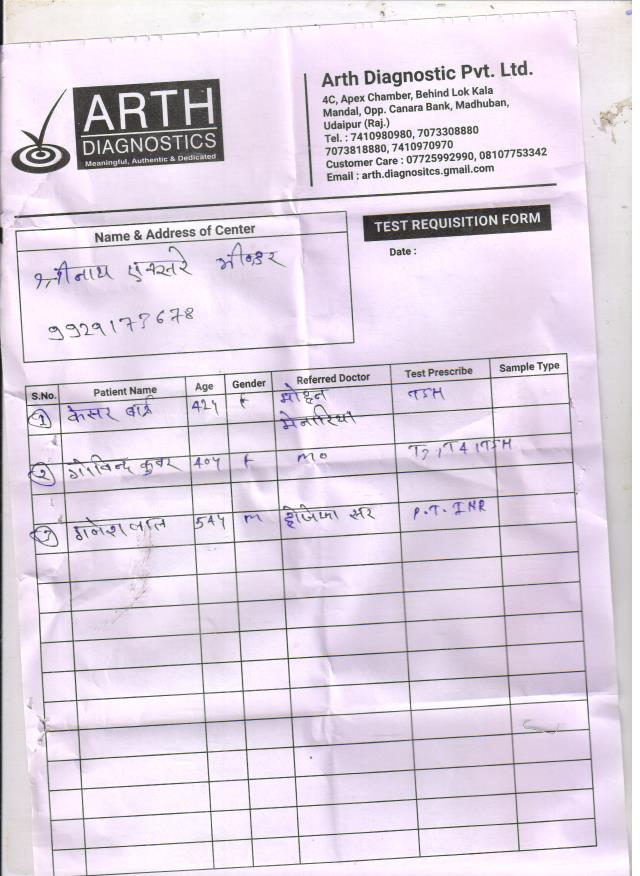 ARTH
DIAGNOSTICS
Meaningful, Authentic & Dedicated
Arth Diagnostic Pvt. Ltd.
4C, Apex Chamber, Behind Lok Kala
Mandal, Opp. Canara Bank, Madhuban,
Udaipur (Raj.)
Tel. : 7410980980, 7073308880
7073818880, 7410970970
Customer Care : 07725992990, 08107753342
Email : arth.diagnositcs.gmail.com
Name & Address of Center
श्रीनाथ एक्सरे भीण्डर
9929173678
TEST REQUISITION FORM
Date :
S.No. Patient Name Age Gender Referred Doctor Test Prescribe Sample Type
1 केसर बाई 42y F मोहन TSH
मेनारिया
2 गोविन्द कुवर 40y F mo T3, T4, TSH
3 गनेश लाल 54y m सर P.T. INR